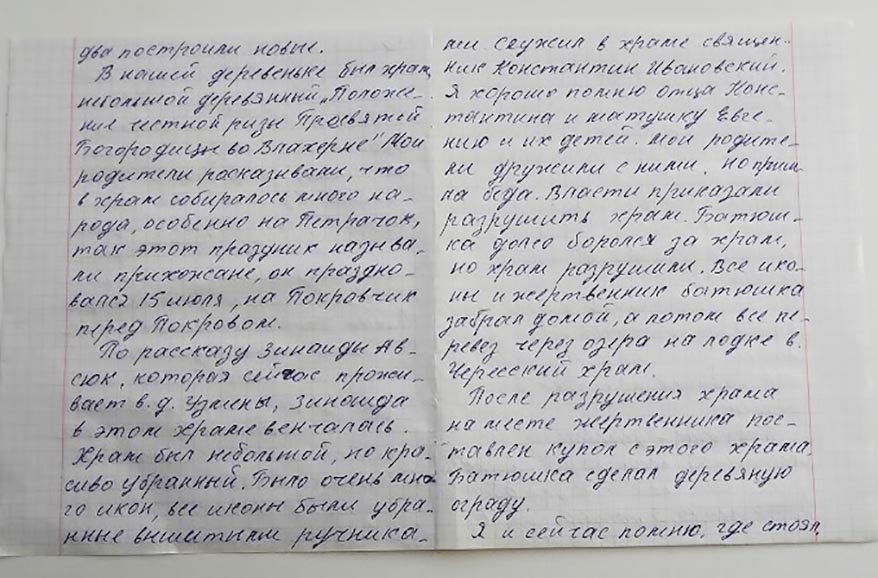 два построили новые.
В нашей деревеньке был храм,
небольшой деревянный „Положе-
ние честной ризы Пресвятой
Богородицы во Влахерне" Мои
родители расказывали, что
в храм собиралось много на-
рода, особенно на Петрачок,
так этот праздник называ-
ли прихожане, он праздно-
вался 15 июля, на Покровчик
перед Покровом.
По рассказу Зинаиды Ав-
сюк, которая сейчас прожи-
вает в. д. Узмены, Зинаида
в этом храме венчалась.
Храм был небольшой, но кра-
сиво убранный. Было очень мно-
го икон, все иконы были убра-
нные вышитыми ручника-
ми. Служил в храме священ-
ник Константин Ивановский.
Я хорошо помню отца Конс-
тантина и матушку Евге-
нию и их детей. Мои родите-
ли дружили с ними. Но приш-
ла беда. Власти приказали
разрушить храм. Батюш-
ка долго боролся за храм,
но храм разрушили. Все ико-
ны и жертвенник батюшка
забрал домой, а потом все пе-
ревез через озера на лодке в.
Чересский храм.
После разрушения храма
на месте жертвенника пос-
тавлен купол с этого храма.
Батюшка сделал деревяную
ограду.
Я и сейчас помню, где стоял